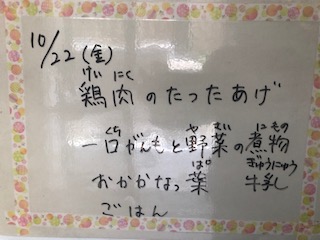 10/22(金)
けい にく
鶏肉のたったあげ
くち や さい にもの
一口がんもと野菜の煮物
ぱ ぎゅうにゅう
おかかなっ葉 牛乳
ごはん